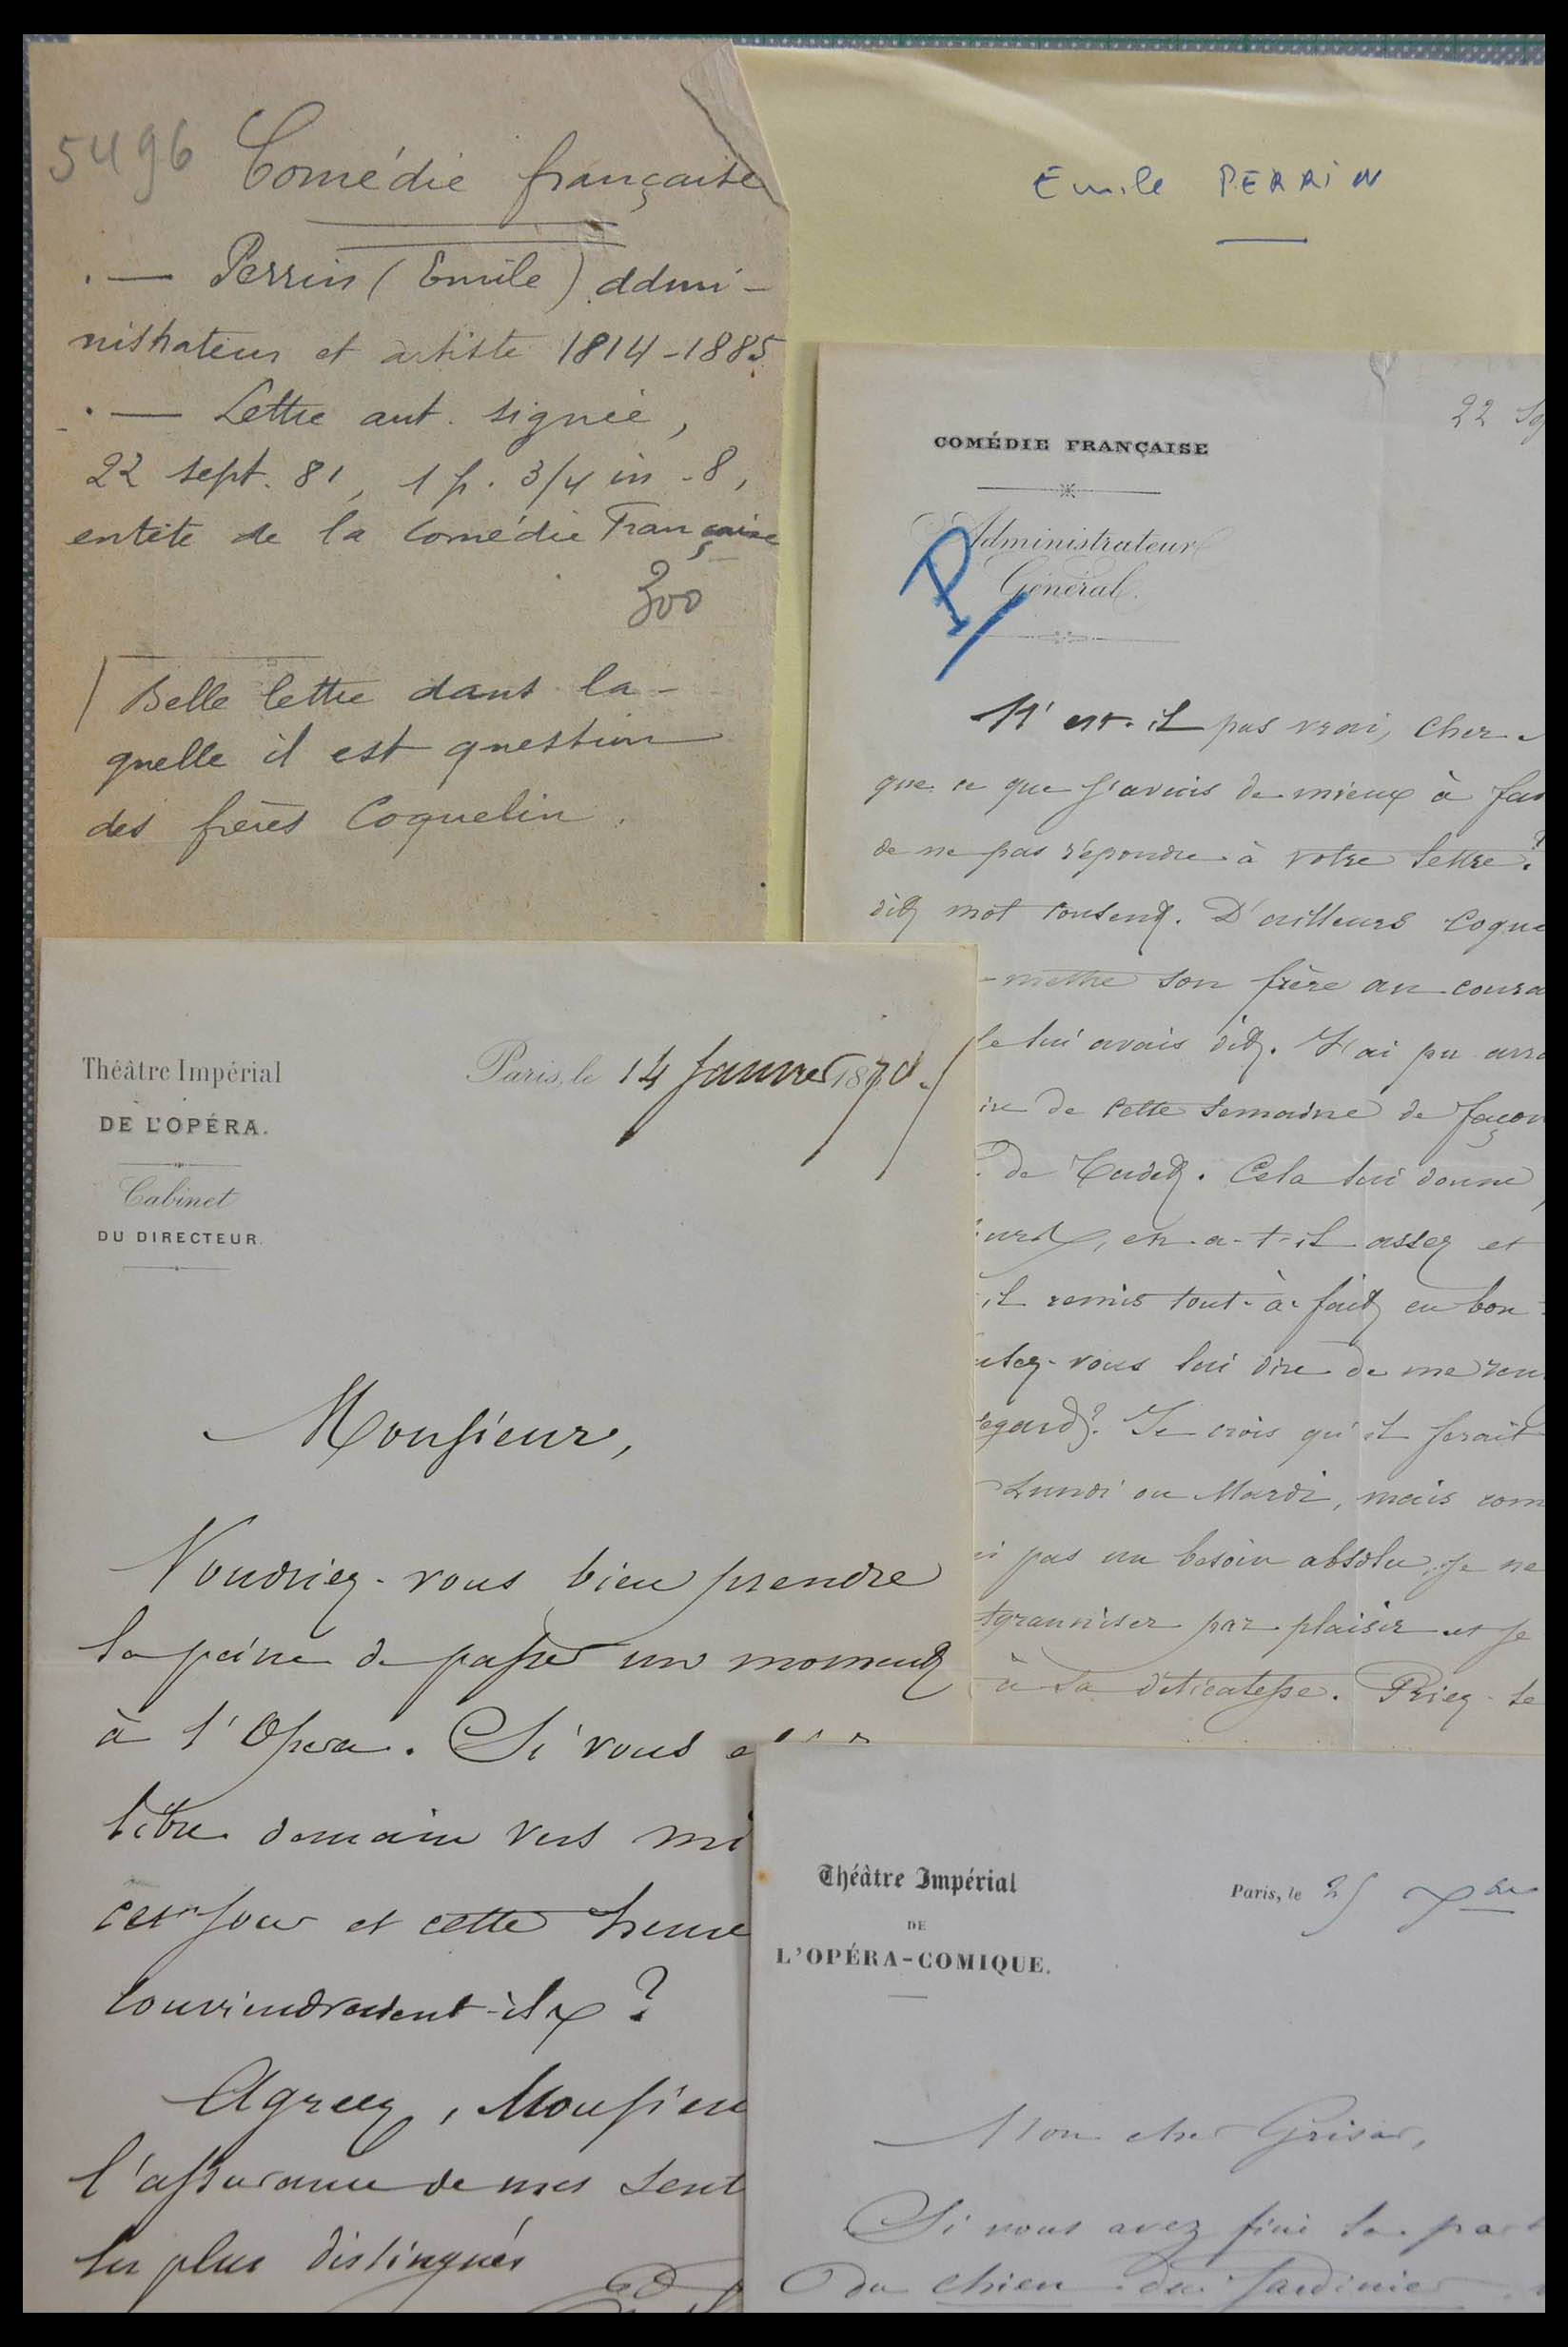 5496 Comédie française
.— Perrin (Emile) admi-
nistrateur et artiste 1814-1885
.— Lettre aut. signée,
22 sept. 81, 1 p. 3/4 in-8,
entête de la Comédie Française
300
Belle lettre dans la-
quelle il est question
des frères Coquelin.
Emile PERRIN
22
COMÉDIE FRANÇAISE
Administrateur
Général.
P/
N'est-il pas vrai, cher
que ce que j'avais de mieux à
de ne pas répondre à votre lettre?
dit mot consent. D'ailleurs
-mettre son frère au
le lui avais dit. J'ai pu
de cette semaine de façon
de Cadet. Cela lui donne
en a-t-il assez et
il remis tout-à-fait en bon
-vous lui dire de me
Je crois qu'il serait
Lundi ou Mardi, mais
pas un besoin absolu, je ne
tyranniser par plaisir et je
à sa délicatesse. Priez-le
Théâtre Impérial
DE L'OPÉRA.
Cabinet
DU DIRECTEUR.
Paris, le 14 Janvier 1870.
Monsieur,
Voudriez-vous bien prendre
la peine de passer un moment
à l'Opera. Si vous
libre demain vers
cet jour et cette heure
conviendraient-ils?
Agreez, Monsieu
l'assurance de mes sent
les plus distingués
Théâtre Impérial
DE
L'OPÉRA-COMIQUE.
Paris, le 25 Xbre
Mon cher Grisar,
Si vous avez fini la
du chien du Jardinier